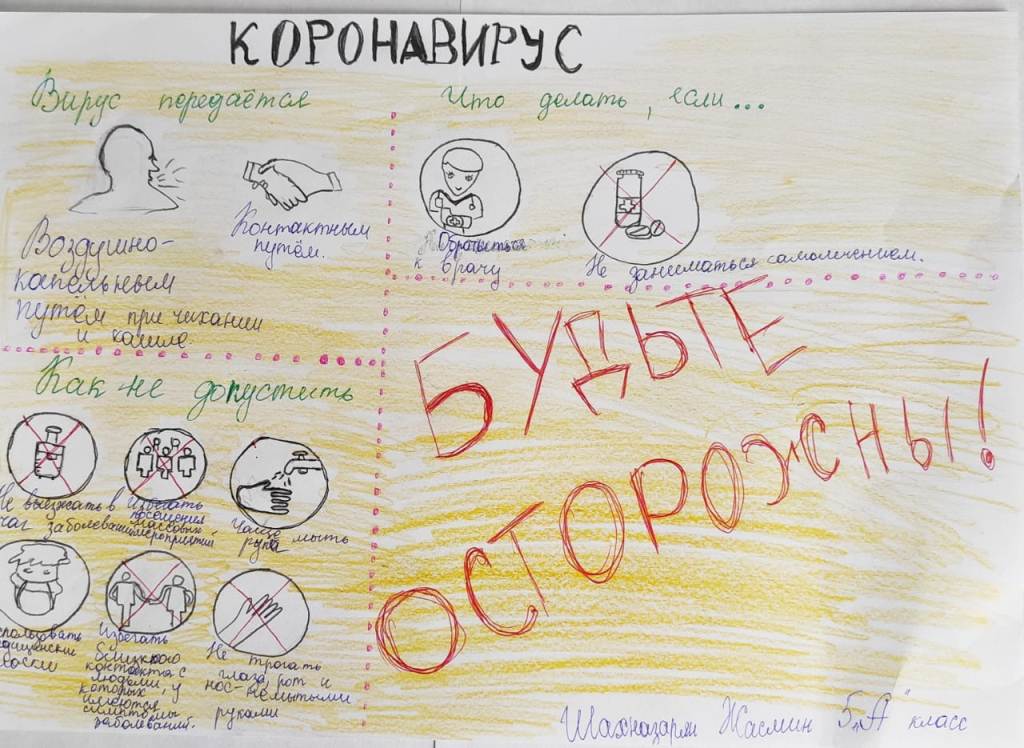 КОРОНАВИРУС
Вирус передаётся
Воздушно-
капельным
путём при чихании
и кашле.
Контактным
путём.
Что делать, если...
Обратиться
к врачу
Не заниматься самолечением.
Как не допустить
Не выезжать в
очаг заболевания
Избегать
посещения
массовых
мероприятий
Чаще мыть
руки
использовать
медицинские
маски
Избегать
близкого
контакта с
людьми, у
которых
имеются
симптомы
заболевания.
Не трогать
глаза, рот и
нос немытыми
руками
БУДЬТЕ
ОСТОРОЖНЫ!
Шахназарян Жасмин 5„А" класс